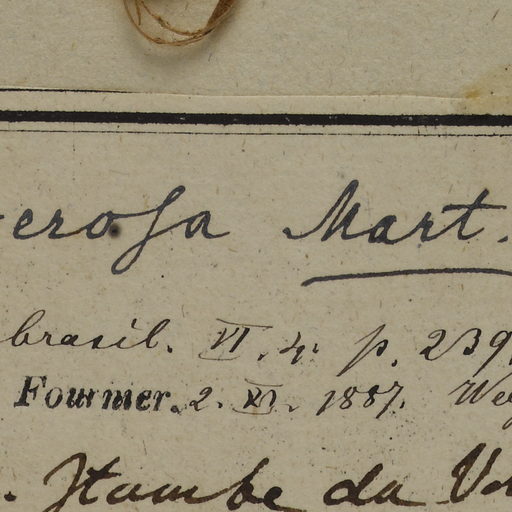 erosa Mart.
brasil. VI. 4. p. 239
Fournier. 2. XI. 1887.
Itambe da